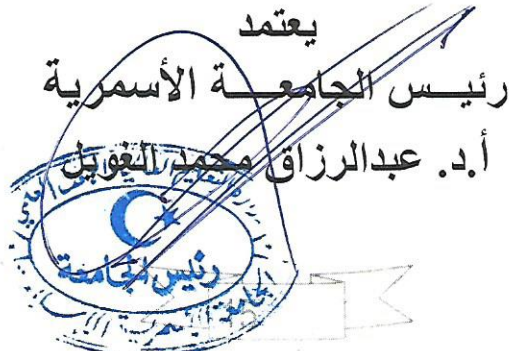 يعتمد
رئيس الجامعة الأسمرية
أ.د. عبدالرزاق محمد الغويل
رئيس الجامعة